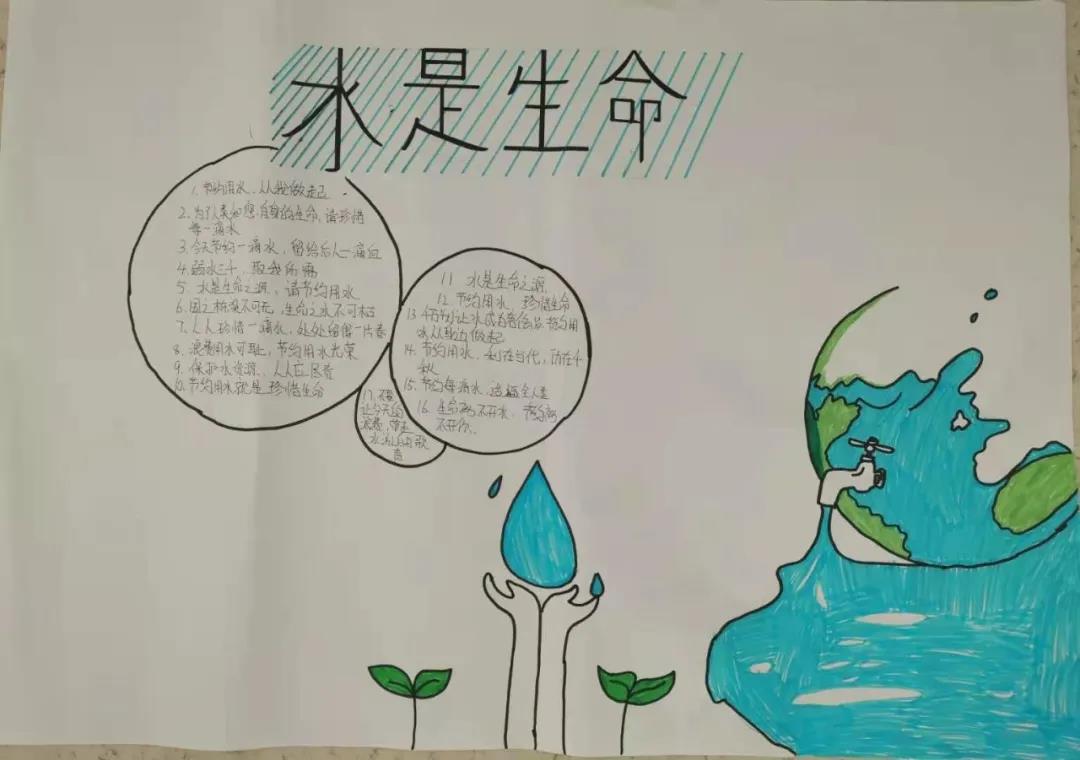 水是生命
1. 节约用水,从我做起
2. 为了人类和您自身的生命,请珍惜
每一滴水
3. 今天节约一滴水,留给后人一滴血
4. 弱水三千,取我所需
5. 水是生命之源,请节约用水
6. 国之栋梁不可无,生命之水不可枯
7. 人人珍惜一滴水,处处给留一片春
8. 浪费用水可耻,节约用水光荣
9. 保护水资源,人人应尽责
10. 节约用水就是珍惜生命
11 水是生命之源,
12. 节约用水,珍惜生命
13 千万别让水成为奢侈品 节约用
水从身边做起
14. 节约用水,利在当代,功在千
秋
15. 节约每滴水,造福全人类
16. 生命离不开水,
不开你.
17. 不要
让今天的
浪费,
水